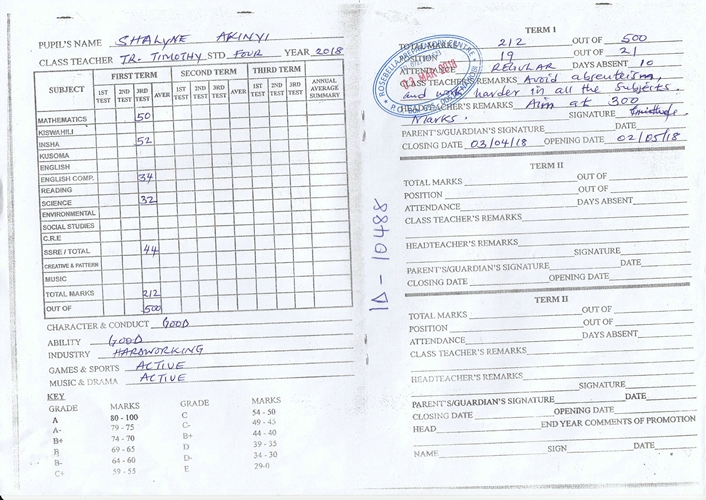 PUPIL'S NAME SHALYNE AKINYI
CLASS TEACHER TR. TIMOTHY STD FOUR YEAR 2018
SUBJECT FIRST TERM SECOND TERM THIRD TERM ANNUAL AVERAGE SUMMARY
1ST TEST 2ND TEST 3RD TEST AVER 1ST TEST 2ND TEST 3RD TEST AVER 1ST TEST 2ND TEST 3RD TEST AVER
MATHEMATICS 50
KISWAHILI
INSHA 52
KUSOMA
ENGLISH
ENGLISH COMP. 34
READING
SCIENCE 32
ENVIRONMENTAL
SOCIAL STUDIES
C.R.E
SSRE / TOTAL 44
CREATIVE & PATTERN
MUSIC
TOTAL MARKS 212
OUT OF 500
CHARACTER & CONDUCT GOOD
ABILITY GOOD
INDUSTRY HARDWORKING
GAMES & SPORTS ACTIVE
MUSIC & DRAMA ACTIVE
KEY
GRADE MARKS GRADE MARKS
A 80 - 100 C 54 - 50
A- 79 - 75 C- 49 - 45
B+ 74 - 70 B+ 44 - 40
B 69 - 65 D 39 - 35
B- 64 - 60 D- 34 - 30
C+ 59 - 55 E 29-0
1D - 10488
TERM I
TOTAL MARKS 212 OUT OF 500
POSITION 19 OUT OF 21
ATTENDANCE REGULAR DAYS ABSENT 10
REMARKS Avoid absenteeism,
and work harder in all the subjects.
HEADTEACHER'S REMARKS Aim at 300
Marks. SIGNATURE
PARENT'S/GUARDIAN'S SIGNATURE DATE
CLOSING DATE 03/04/18 OPENING DATE 02/05/18
TERM II
TOTAL MARKS OUT OF
POSITION OUT OF
ATTENDANCE DAYS ABSENT
CLASS TEACHER'S REMARKS
HEADTEACHER'S REMARKS
SIGNATURE
PARENT'S/GUARDIAN'S SIGNATURE DATE
CLOSING DATE OPENING DATE
TERM II
TOTAL MARKS OUT OF
POSITION OUT OF
ATTENDANCE DAYS ABSENT
CLASS TEACHER'S REMARKS
HEADTEACHER'S REMARKS
SIGNATURE
PARENT'S/GUARDIAN'S SIGNATURE DATE
CLOSING DATE OPENING DATE
HEAD END YEAR COMMENTS OF PROMOTION
NAME SIGN DATE